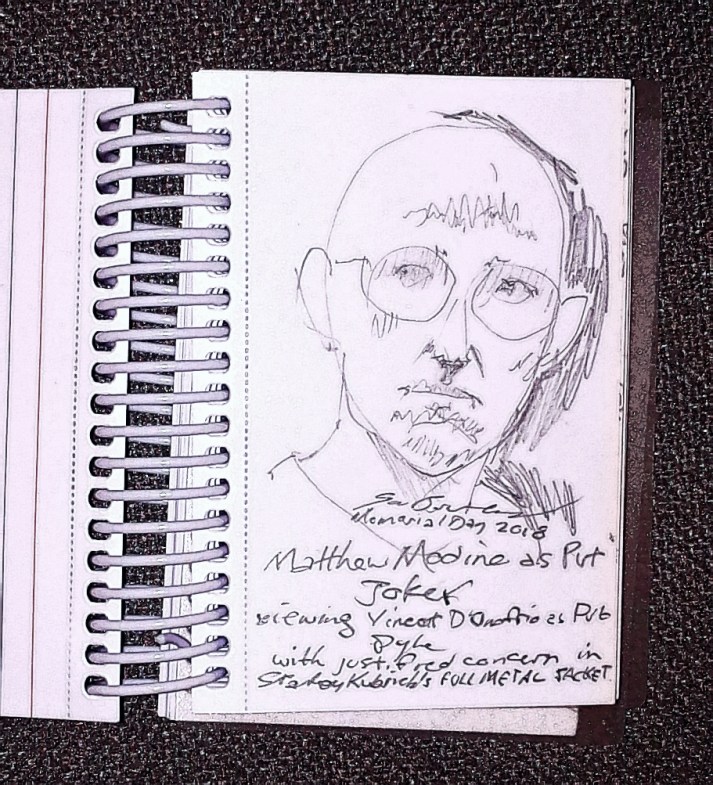 Memorial Day 2018
Matthew Modine as Pvt
Joker
viewing Vincent D'Onofrio as Pvt
Pyle
with justified concern in
Stanley Kubrick's FULL METAL JACKET